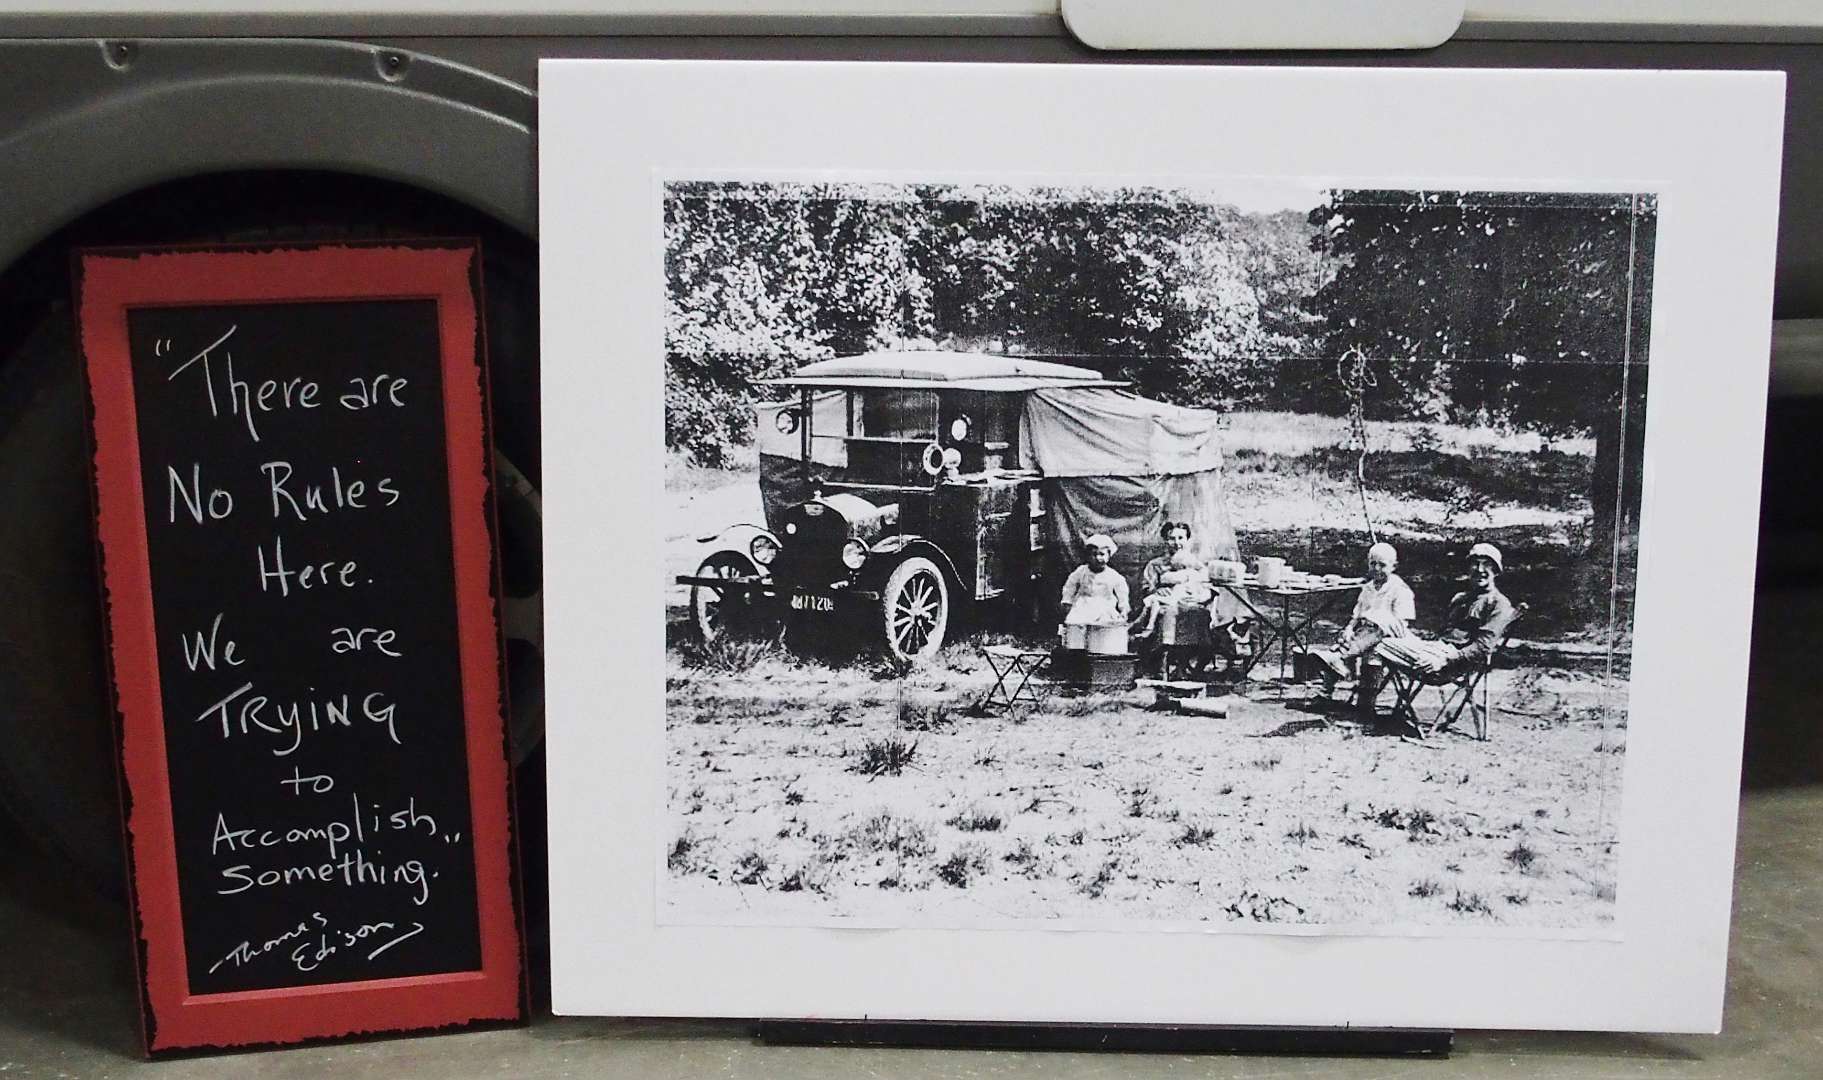 "There are
No Rules
Here.
We are
TRYING
to
Accomplish
something."
Thomas
Edison